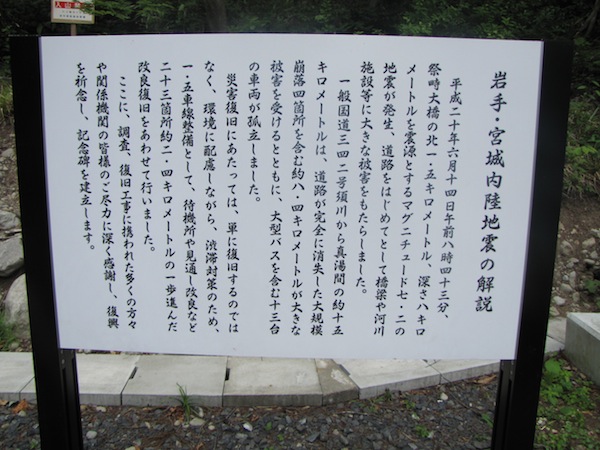 岩手・宮城内陸地震の解説
平成二十年六月十四日午前八時四十三分、
祭畤大橋の北一・五キロメートル、深さ八キロ
メートルを震源とするマグニチュード七・二の
地震が発生、道路をはじめとして橋梁や河川
施設等に大きな被害をもたらしました。
一般国道三四二号須川から真湯間の約十五
キロメートルは、道路が完全に消失した大規模
崩落四箇所を含む約八・四キロメートルが大きな
被害を受けるとともに、大型バスを含む十三台
の車両が孤立しました。
災害復旧にあたっては、単に復旧するのでは
なく、環境に配慮しながら、渋滞対策のため、
一・五車線整備として、待機所や見通し改良など
二十三箇所約二・四キロメートルの一歩進んだ
改良復旧をあわせて行いました。
ここに、調査、復旧工事に携われた多くの方々
や関係機関の皆様のご尽力に深く感謝し、復興
を祈念し、記念碑を建立します。